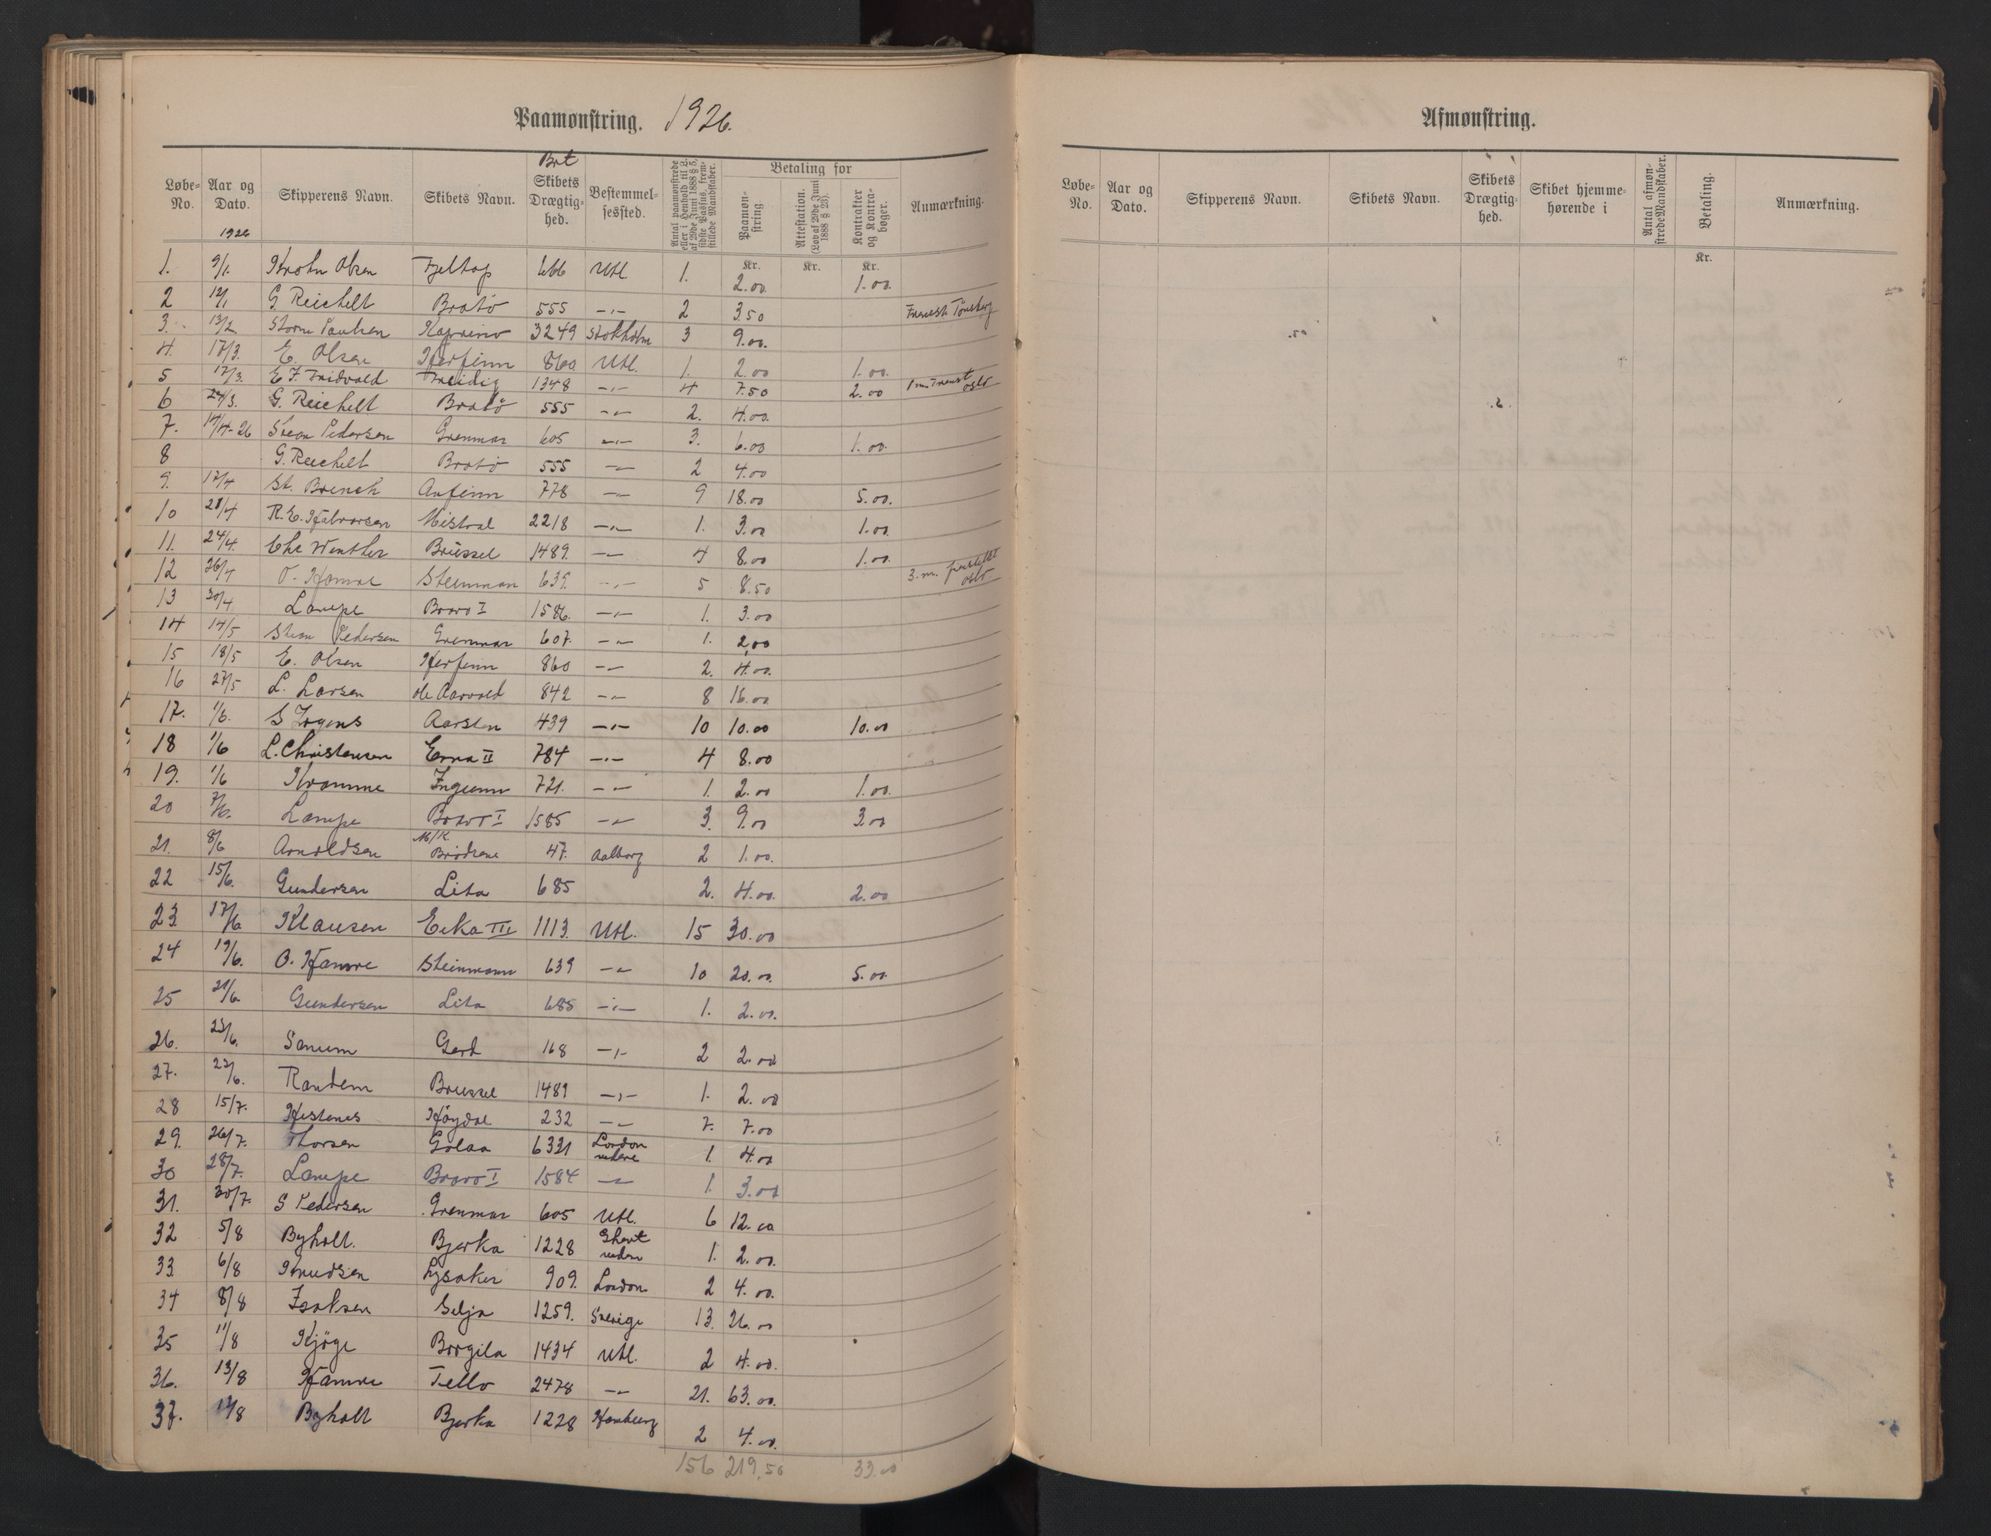 Paamønstring. 1926.
Løbe-No. Aar og Dato. Skipperens Navn. Skibets Navn. Brt Skibets Drægtighed. Bestemmelsessted. Antal paamønstrede eller i Henhold til L. af 29de Juni 1888 § 5, sidste Passus, fremstillede Mandskaber. Betaling for Paamønstring Attestation. (Lov af 29de Juni 1888 § 23). Kontrakter og Kontrabøger. Anmærkning.
1926
Kr. Kr. Kr.
1. 9/1. Olsen 666 Utl 1. 2.00 1.00
2 12/1 G Reichelt Bratö 555 -"- 2 3.50
3. 13/2 Storm Paulsen 3249 Stokholm 3 9.00
4. 17/3. E. Olsen Herfinn 860 Utl. 1. 2.00 1.00
5 17/3. E. F. Fridvold Freidig 1348 -"- 4 7.50 2.00
6 24/3. G. Reichelt Bratö 555 -"- 2. 4.00
7. 14/4-26 Sten Pedersen Grenmar 605 -"- 3. 6.00 1.00
8 G. Reichelt Bratö 555 -"- 2 4.00
9. 17/4 St. Brinch Anfinn 778 -"- 9 18.00 5.00
10 21/4 R. E. Halvorsen Mistral 2218 -"- 1. 3.00 1.00
11. 24/4. Chr Winther Brüssel 1489. -"- 4 8.00 1.00
12 26/4 O. Hamre Steinmann 639. -"- 5 8.50 3. m. oslo
13 30/4 Lampe Bravo I 1586. -"- 1. 3.00
14 14/5 Sten Pedersen Grenmar 607. -"- 1. 2,00
15 18/5 E. Olsen Herfinn 860 -"- 2. 4.00
16 27/5 L. Larsen Ole Aarvold 842 -"- 8 16.00
17. 1/6. S Jrgens Aarsten 439 -"- 10 10.00 10.00
18 1/6 L. Christensen Erna II 784 -"- 4 8.00
19. 1/6 Kromme Ingunn 721. -"- 1. 2.00 1.00
20 7/6. Lampe Bravo I 1585 -"- 3. 9.00 3.00
21. 8/6 Arnoldsen M/K Brödrene 47. Aalborg 2 1.00
22 15/6. Gundersen Lita 685 2. 4.00 2.00
23. 17/6 Klausen Erka III 1113. Utl. 15 30.00
24 19/6. O. Hamre Steinmann 639 -"- 10 20.00 5.00
25 21/6. Gundersen Lita 685 -"- 1. 2.00
26. 23/6. Sanum Gerd 168 -"- 2 2.00
27. 23/6. Randem Brussel 1489 -"- 1. 2.00
28 15/7. Hestenes Höydal 232 -"- 7. 7.00
29. 26/7. Thorsen Golaa 6321 London videre 1. 4.00
30 28/7. Lampe Bravo I 1584 -"- 1. 3.00
31. 30/7. S Pedersen Grenmar 605 Utl. 6 12.00
32 5/8 Byholt. Bjerka 1228 Ghent videre 1. 2.00
33. 6/8 Knudsen Lysaker 909. London 2 4.00
34 8/8 Isaksen Selja 1259. Sverige 13. 26.00
35 11/8 Kjöge Borgila 1434 Utl. 2 4.00
36. 13/8 Hamre Tello 2478 -"- 21. 63.00
37. 17/8 Byholt Bjerka 1228 Hamburg 2 4.00
156 219,50 33.00
Afmønstring.
Løbe-No. Aar og Dato. Skipperens Navn. Skibets Navn. Skibets Drægtighed. Skibet hjemmehørende i Antal afmønstrede Mandskaber. Betaling. Anmærkning.
Kr.